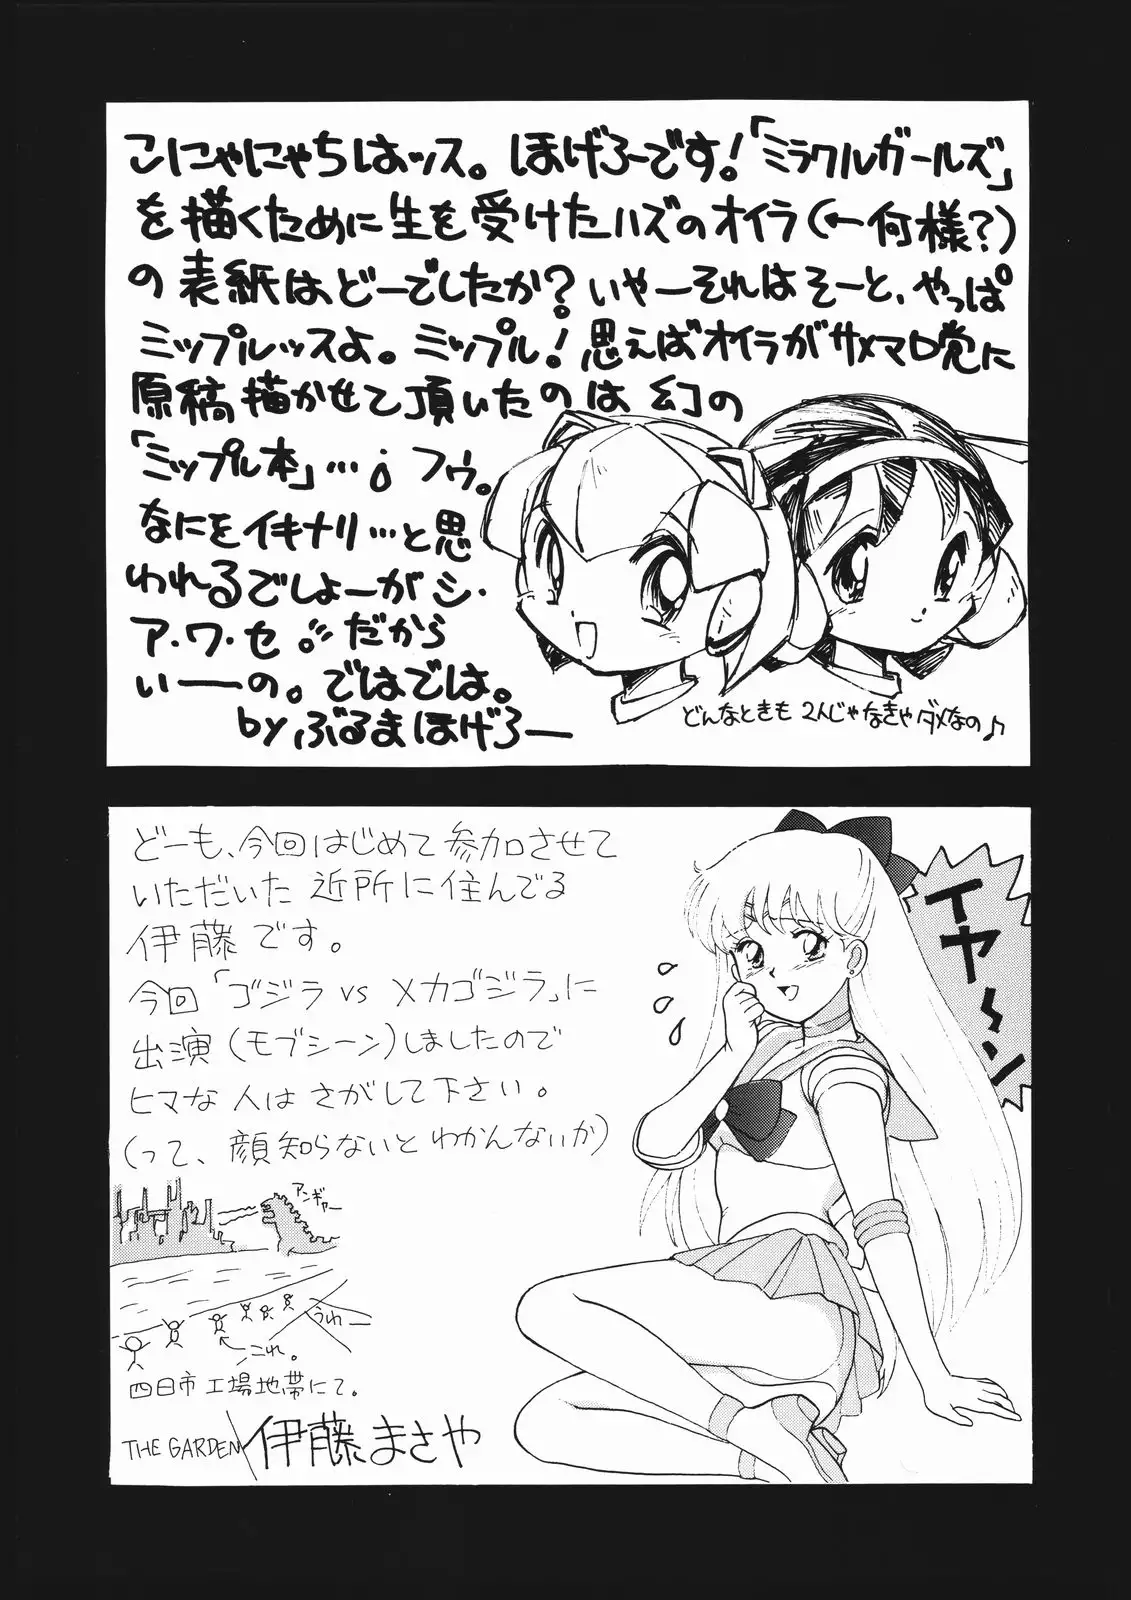 こにゃにゃちはッス。ほげろーです!「ミラクルガールズ」
を描くために生を受けたハズのオイラ(←何様?)
の表紙は、どーでしたか?いやーそれはそーと、やっぱ
ミップルッスよ。ミップル!思えばオイラがサメマロ党に
原稿描かせて頂いたのは幻の
「ミップル本」…。フゥ。
なにをイキナリ…と思
われるでしょーがシ・
ア・ワ・セ。だから
いーの。ではでは。
by ぶるまほげろー
どんなときも2人じゃなきゃダメなの♪
どーも、今回はじめて参加させて
いただいた近所に住んでる
伊藤です。
今回「ゴジラvsメカゴジラ」に
出演(モブシーン)しましたので
ヒマな人はさがして下さい。
(って、顔知らないとわかんないか)
アンギャー
うわー
これ。
四日市工場地帯にて。
THE GARDEN/伊藤まさや
イヤ〜ン